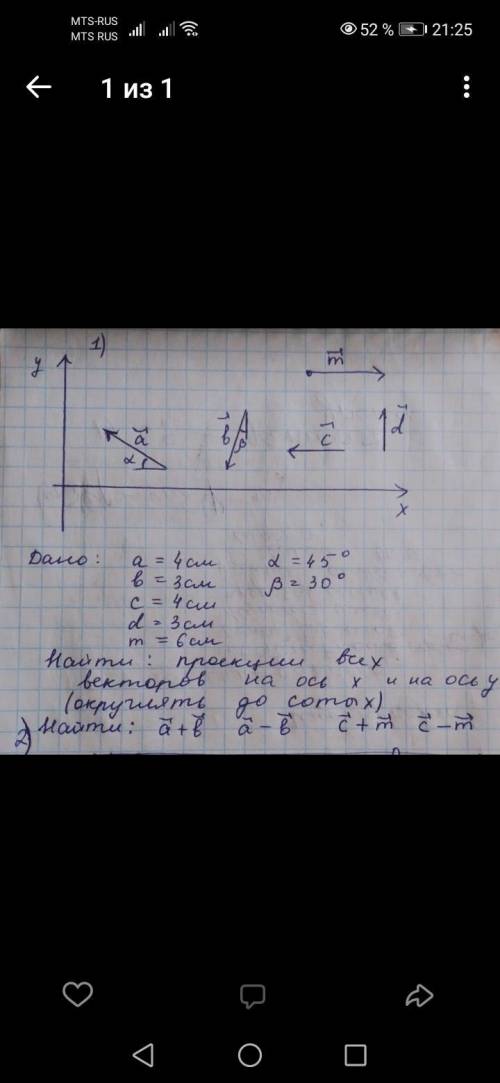 MTS-RUS
MTS RUS
52 %
21:25
1 из 1
1)
y
m
a
α
b
β
c
d
x
Дано: a = 4см α = 45°
в = 3см β = 30°
c = 4см
d = 3см
m = 6см
Найти: проекции всех
векторов на ось x и на ось y
(округлять до сотых)
2) Найти: a+b a-b c+m c-m